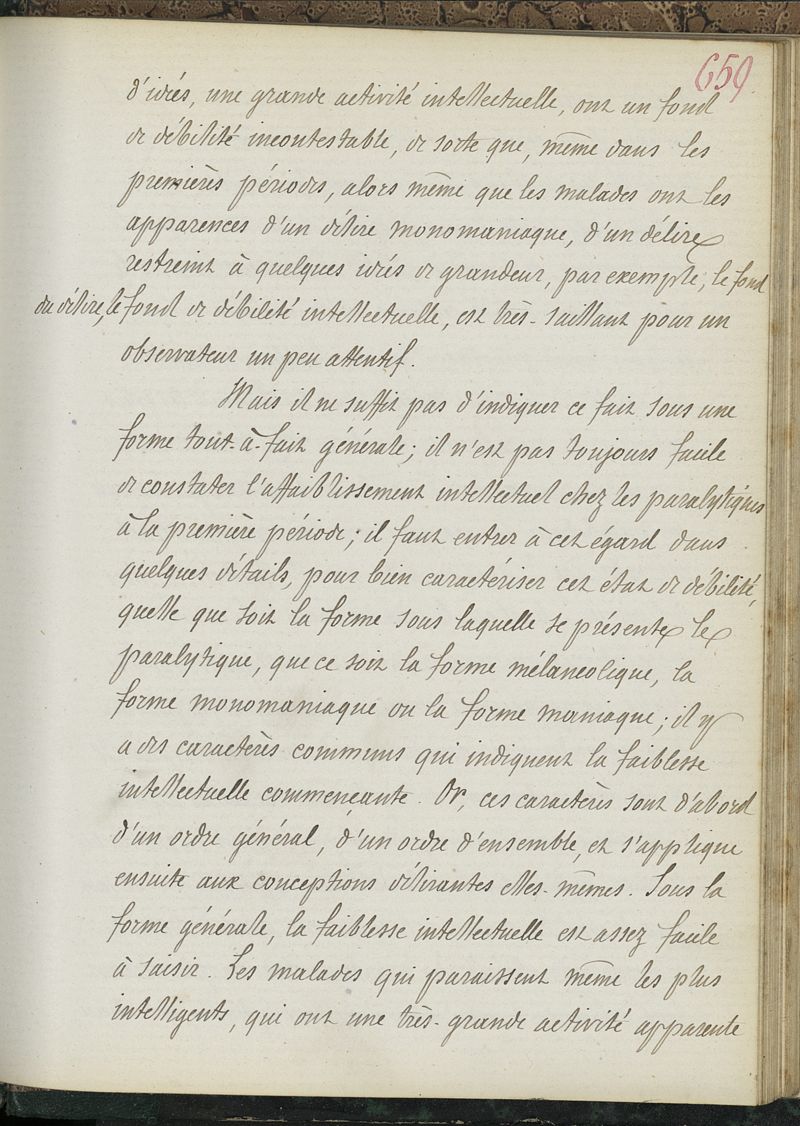 659
d'idées, une grande activité intellectuelle, ont un fond
de débilité incontestable, de sorte que, même dans les
premières périodes, alors même que les malades ont les
apparences d'un délire monomaniaque, d'un délire
restreint à quelques idées de grandeur, par exemple, le fond
du délire, le fond de débilité intellectuelle, est très-saillant pour un
observateur un peu attentif.
Mais il ne suffit pas d'indiquer ce fait sous une
forme tout-à-fait générale; il n'est pas toujours facile
de constater l'affaiblissement intellectuel chez les paralytiques
à la première période; il faut entrer à cet égard dans
quelques détails, pour bien caractériser cet état de débilité,
quelle que soit la forme sous laquelle se présente le
paralytique, que ce soit la forme mélancolique, la
forme monomaniaque ou la forme maniaque; il y
a des caractères communs qui indiquent la faiblesse
intellectuelle commencante. Or, ces caractères sont d'abord
d'un ordre général, d'un ordre d'ensemble, et s'applique
ensuite aux conceptions délirantes elles-mêmes. Sous la
forme générale, la faiblesse intellectuelle est assez facile
à saisir. Les malades qui paraissent même les plus
intelligents, qui ont une très-grande activité apparente